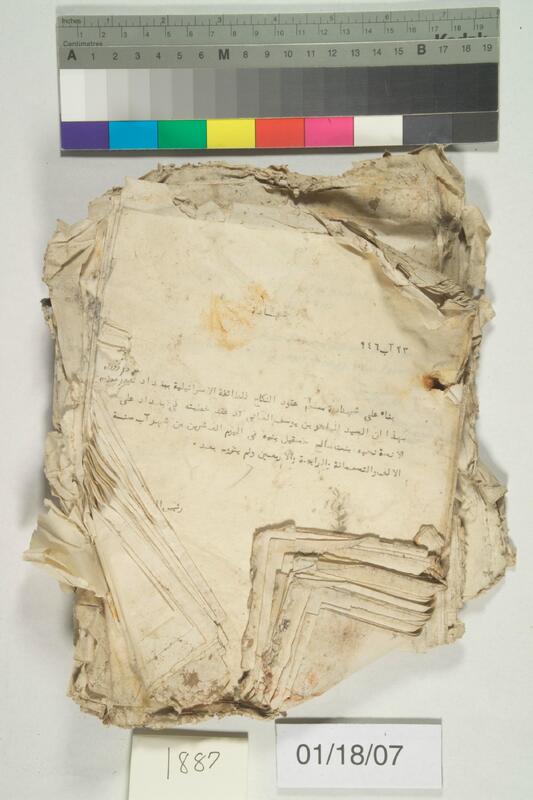 Inches
1 2 3 4 5 6 7
Centimetres 1 2 3 4 5 6 7 8 9 10 11 12 13 14 15 16 17 18 19
Kodak
A 1 2 3 4 5 6 M 8 9 10 11 12 13 14 15 B 17 18 19
شهادة
٢٣ آب ٩٤٦
بناء على شهادة مسلم عقود النكاح للطائفة الاسرائيلية ببغداد
بهذا ان السيد الياهو بن يوسف قد عقد خطبته في بغداد على
الآنسة نجيه بنت صالح حسقيل بنيه في اليوم العشرين من شهر آب سنة
الالف والتسعمائة والرابعة والاربعين ولم يتزوج بعد ٠
رئيس
1887
01/18/07